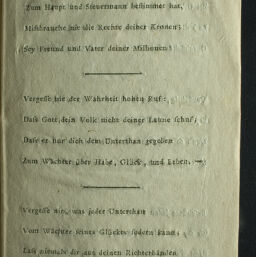 Zum Haupt und Steuermann bestimmet hat,
Mißbrauche nie die Rechte deiner Kronen;
Sey Freund und Vater deiner Millionen!
Vergesse nie der Wahrheit hohen Ruf:
Daß Gott dein Volk nicht deiner Laune schuf,
Daß er nur dich dem Unterthan gegeben
Zum Wächter über Habe, Glück, und Leben.
Vergesse nie, was jeder Unterthan
Vom Wächter seines Glückes fodern kann;
Laß niemals dir aus deinen Richterhänden